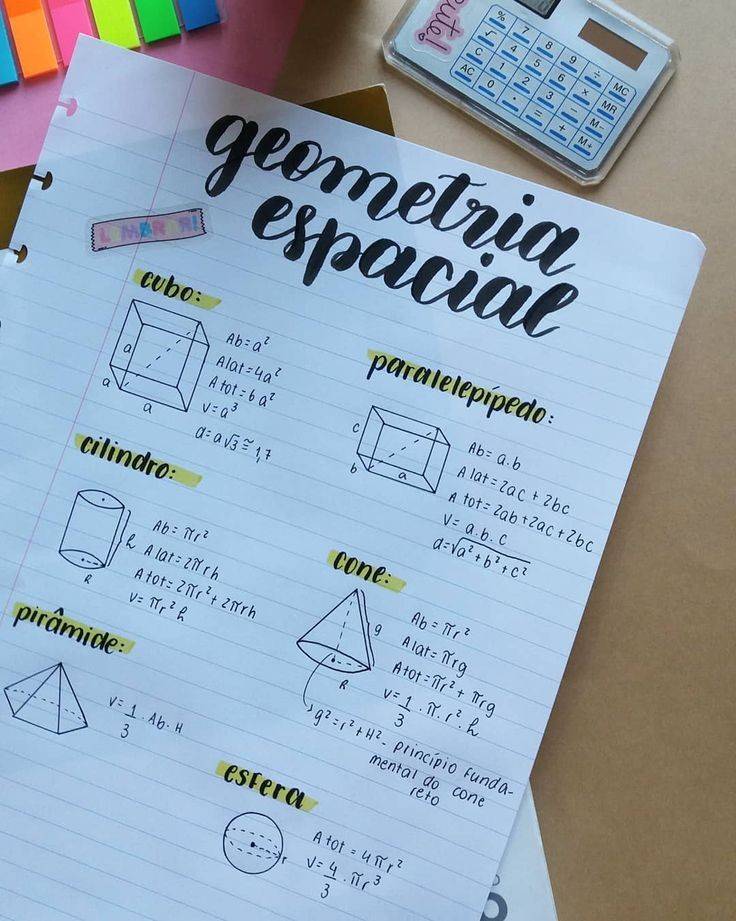 geometria
espacial
LEMBRAR!
cubo:
a
a
a
Ab = a²
Alat = 4a²
Atot = 6a²
V = a³
d = a√3 ≅ 1,7
paralelepípedo:
c
b
a
Ab = a.b
Alat = 2ac + 2bc
Atot = 2ab + 2ac + 2bc
V = a.b.c
d = √a² + b² + c²
cilindro:
h
R
Ab = πr²
Alat = 2πrh
Atot = 2πr² + 2πrh
V = πr²h
cone:
g
R
Ab = πr²
Alat = πrg
Atot = πr² + πrg
V = 1/3 . π . r² . h
g² = r² + H² - princípio funda-
mental do cone
reto
pirâmide:
V = 1/3 . Ab . H
esfera
r
Atot = 4πr²
V = 4/3 . πr³
% 7 8 9 ÷ MC
√ 4 5 6 × MR
C 1 2 3 − M-
AC 0 . = + M+